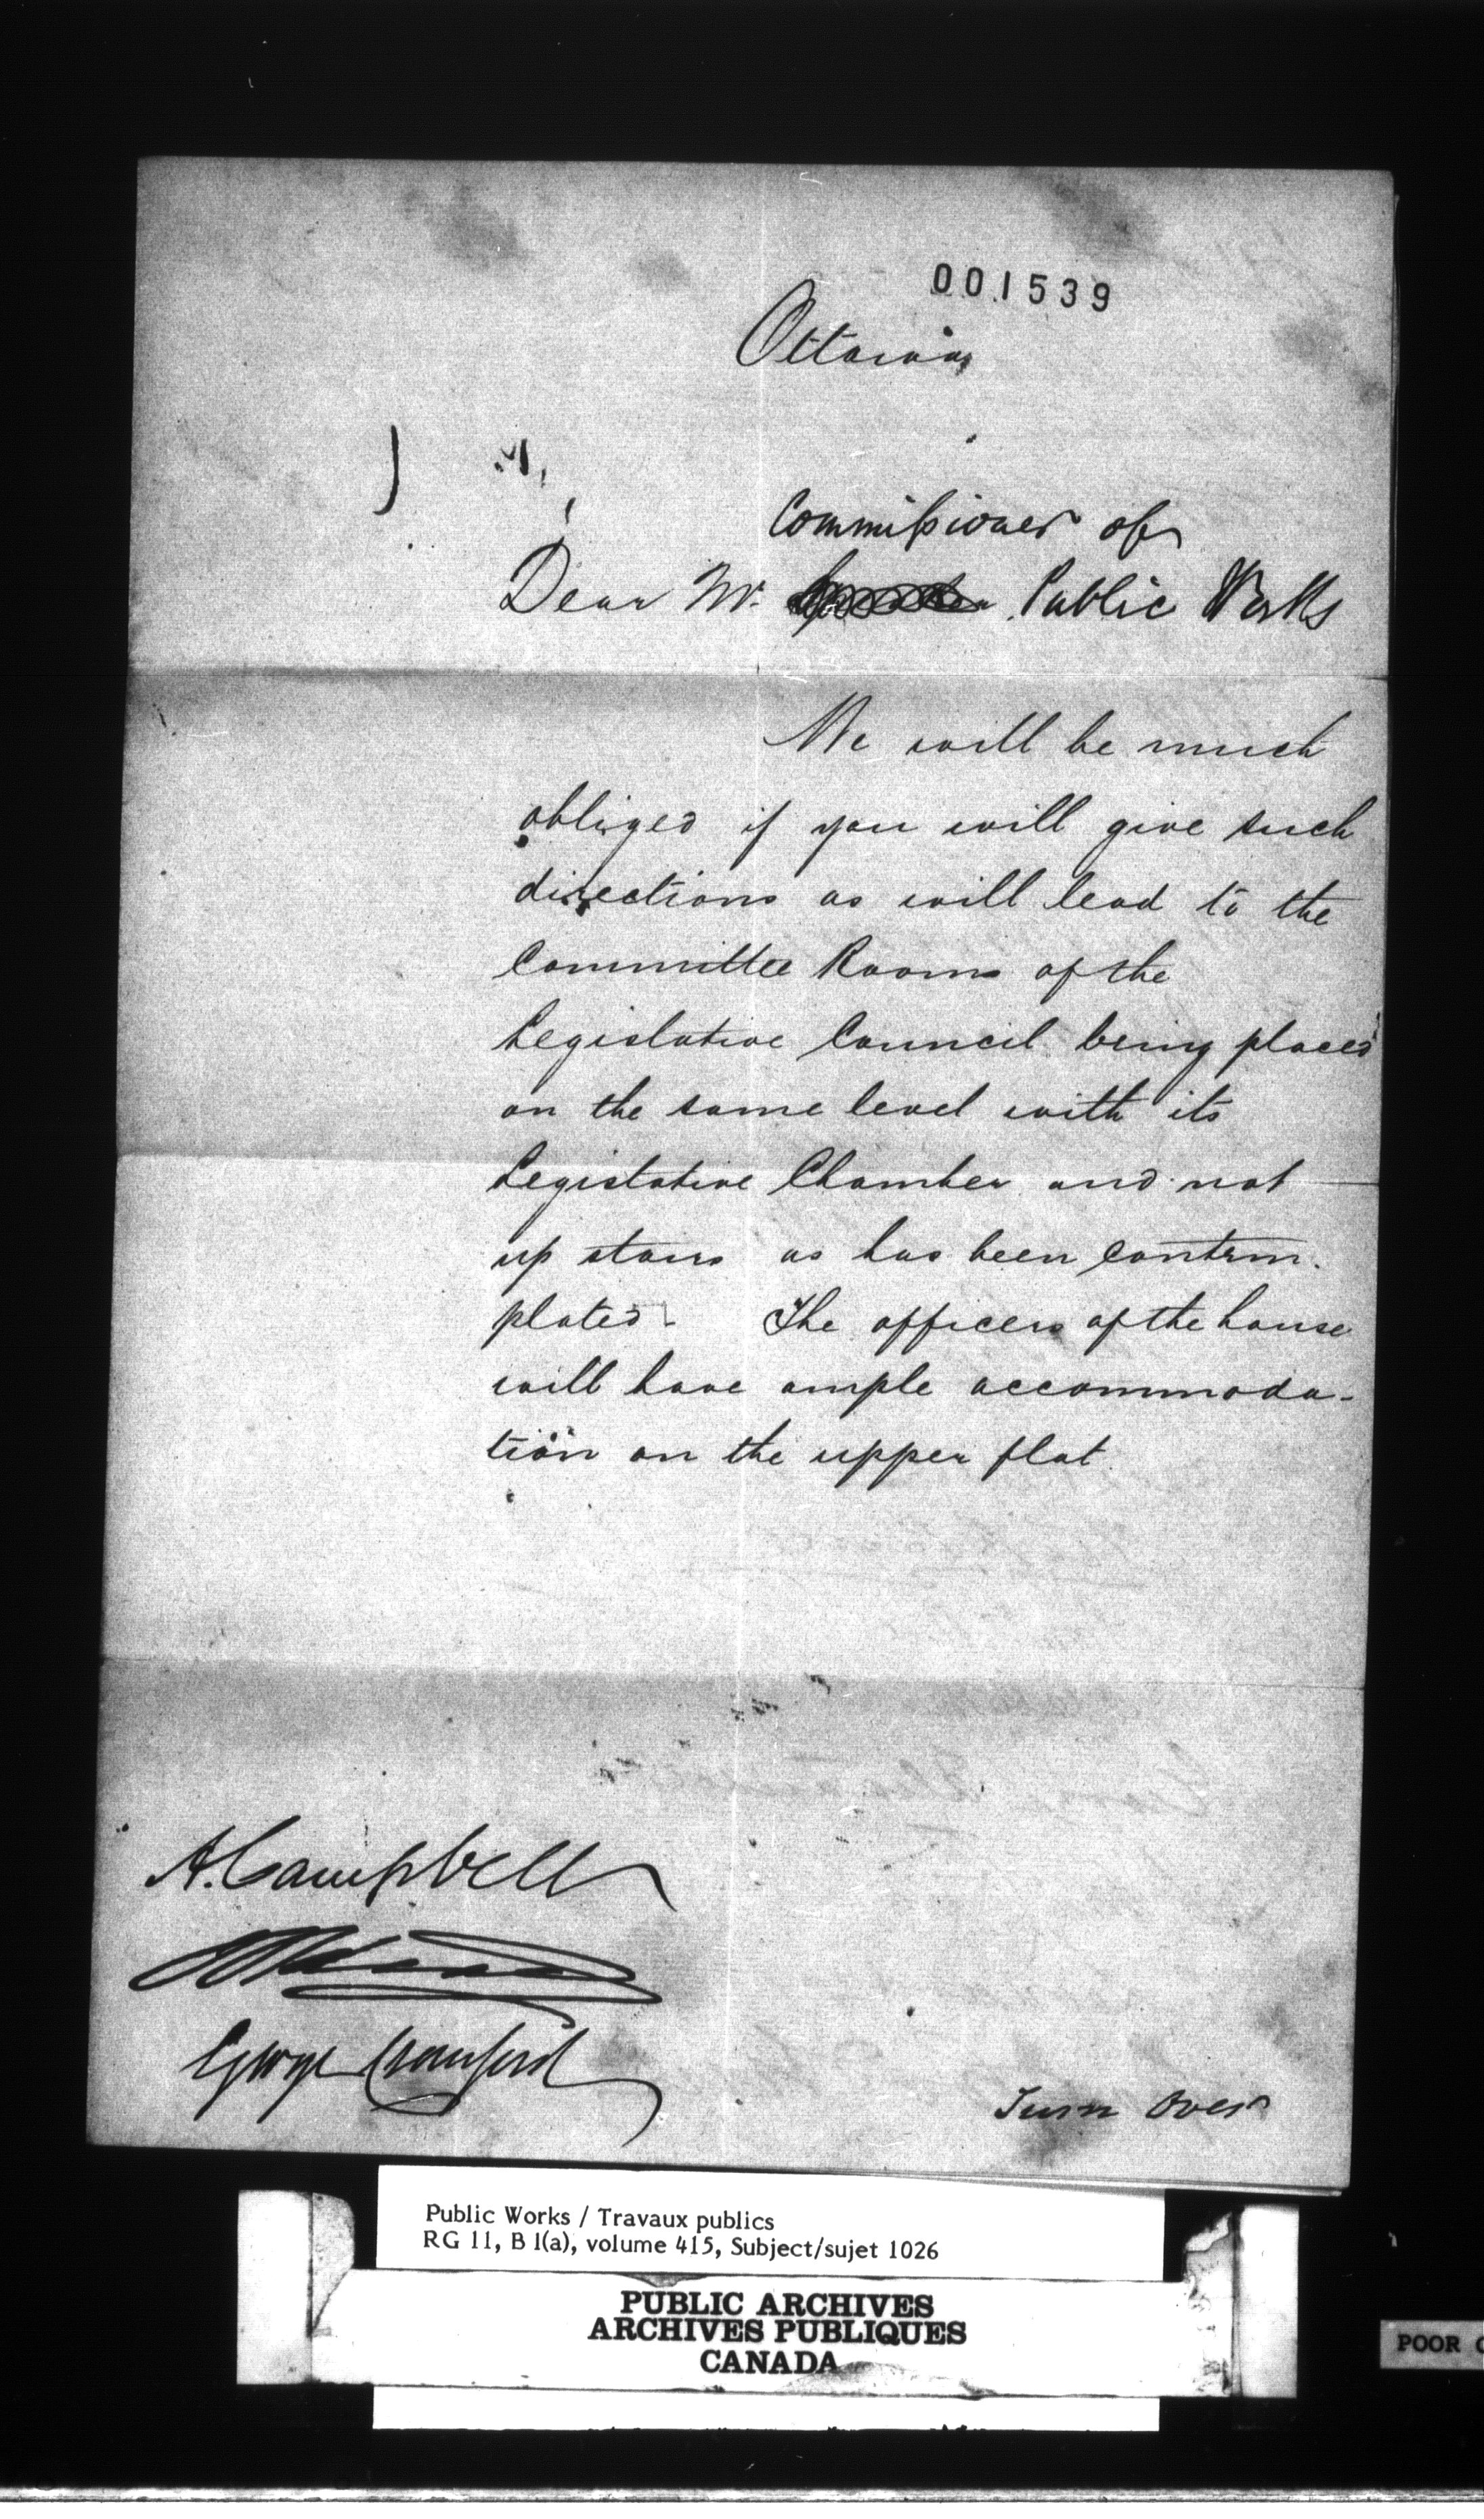 001539
Ottawa,
Commissioner of
Dear Mr. Public Works
We will be much
obliged if you will give such
directions as will lead to the
Committee Rooms of the
Legislative Council being placed
on the same level with its
Legislative Chamber and not
up stairs as has been contem-
plated. The officers of the house
will have ample accommoda-
tion on the upper flat.
A. Campbell
George Crawford
Turn Over
Public Works / Travaux publics
RG 11, B 1(a), volume 415, Subject/sujet 1026
PUBLIC ARCHIVES
ARCHIVES PUBLIQUES
CANADA
POOR